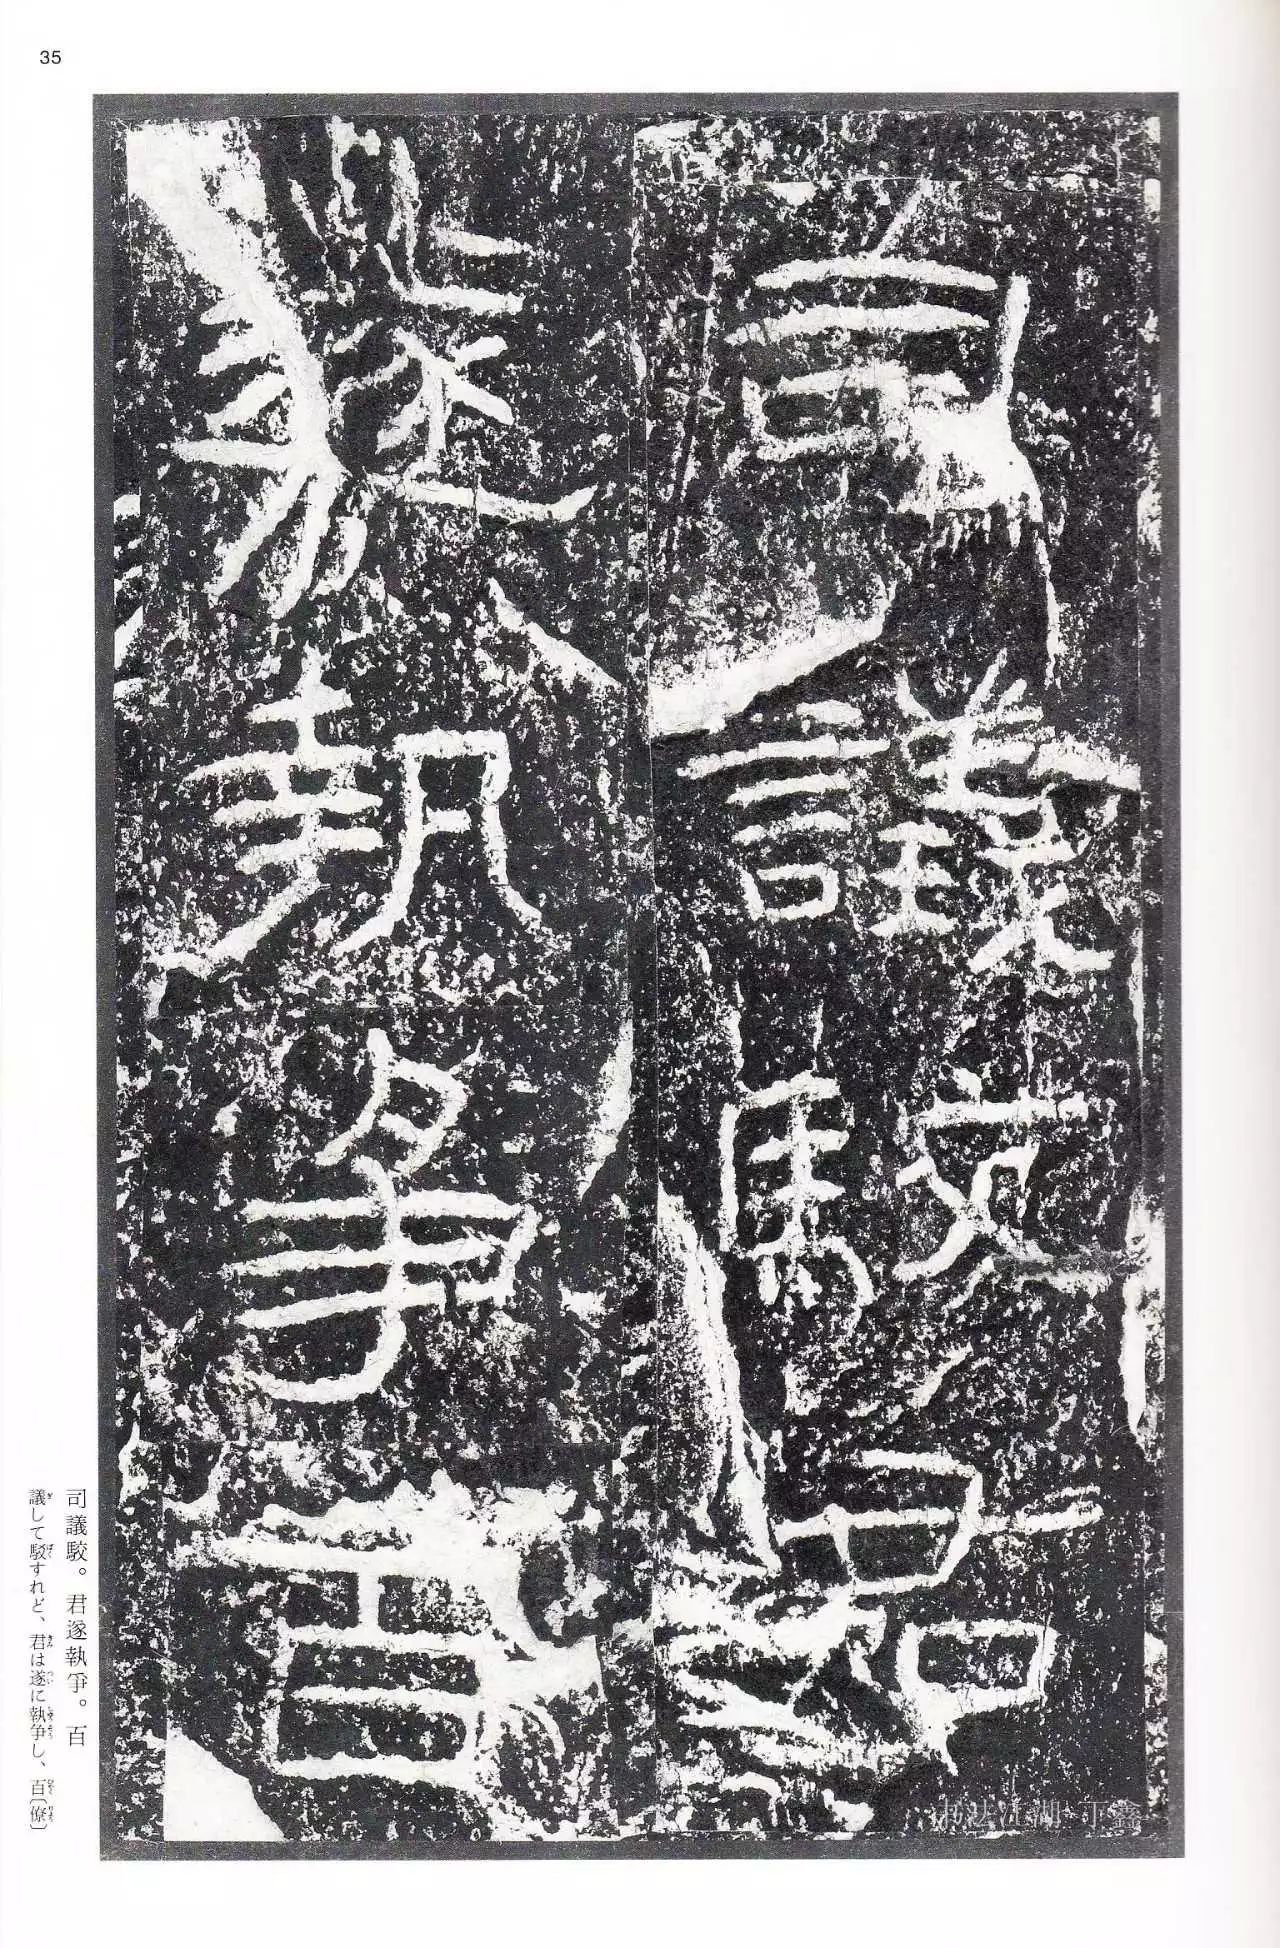 35
司議駮君
遂執爭百
司議駮。君遂執爭。百
議して駮すれど、君は遂に執争し、百〔僚〕
书法江湖 丁鑫